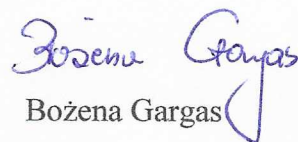 Bożena Gargas
Bożena Gargas